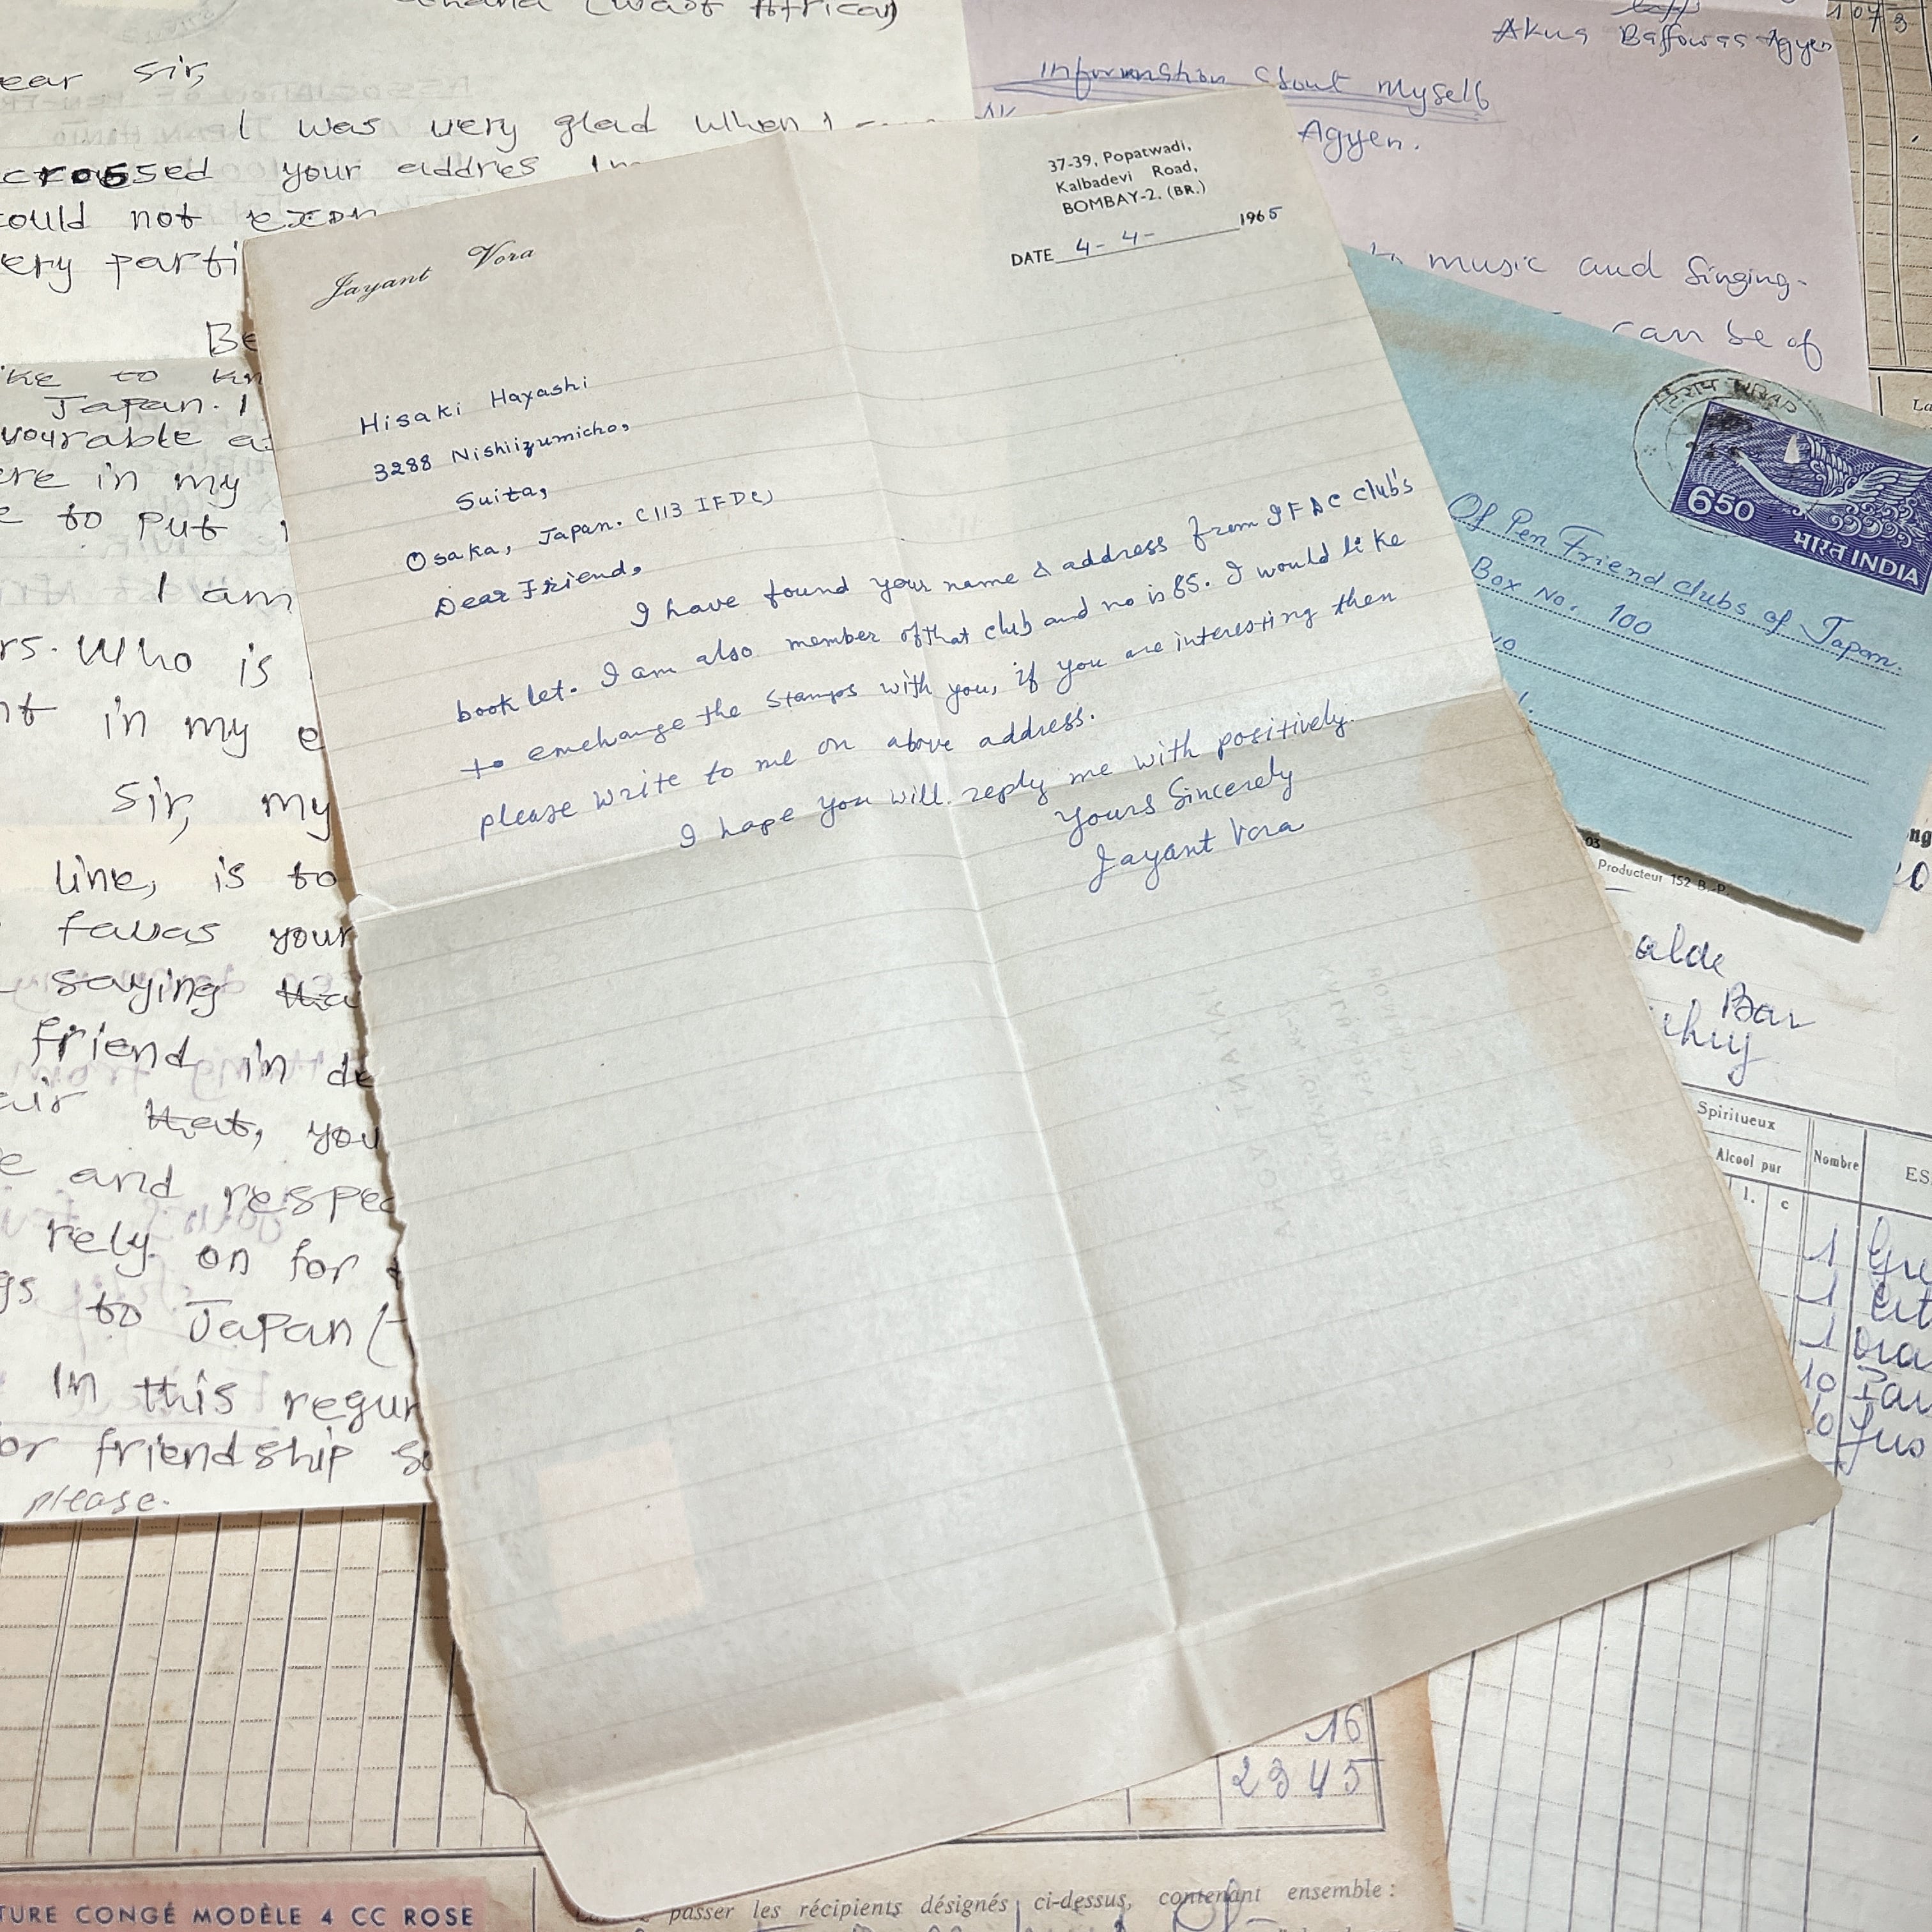 Ghana (West Africa)
ear Sir,
I was very glad when I
crossed your addres
ould not
ery parti
Be
ike to kn
Japan. I
vourable
ere in my
e to put
I am
rs. Who is
nt in my e
Sir, my
line, is to
favas your
saying tha
friend in de
air that, you
e and respec
rely on for
gs to Japan (
In this regur
or friendship
please.
Akua Baffowaa Agyen
Information about Myself
Agyen.
to music and Singing.
can be of
1073
Jayant Vora
37-39, Popatwadi,
Kalbadevi Road,
BOMBAY-2. (BR.)
DATE 4-4- 1965
Hisaki Hayashi
3288 Nishiizumicho,
Suita,
Osaka, Japan. (113 IFDC)
Dear Friend,
I have found your name & address from IFDC club's
booklet. I am also member of that club and no is 85. I would like
to emchange the stamps with you, if you are interesting then
please write to me on above address.
I hope you will reply me with positively.
Yours Sincerely
Jayant Vora
650
भारत INDIA
Of Pen Friend clubs of Japan.
Box No. 100
Producteur 152 B.-P.
alde
Bar
Spiritueux
Alcool pur
Nombre
ES
l. c
1
1
1
10
16
2345
TURE CONGÉ MODÈLE 4 CC ROSE
passer les récipients désignés ci-dessus, contenant ensemble :